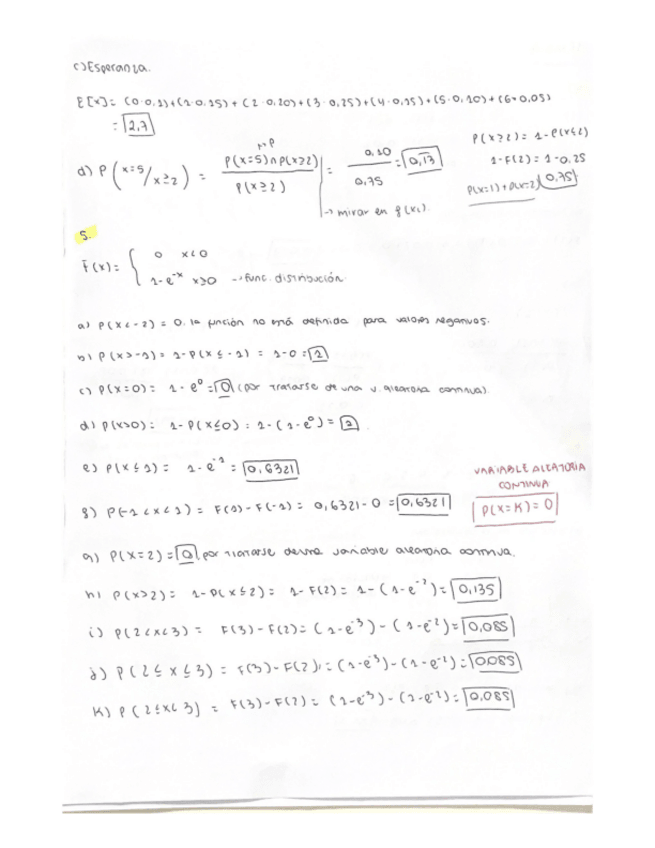 c) Esperanza.
E[x] = (0·0,1)+(1·0,15)+(2·0,20)+(3·0,25)+(4·0,15)+(5·0,10)+(6·0,05)
= 2,7
d) P(x=5/x≥2) = P(x=5)∩P(x≥2) / P(x≥2) = 0,10 / 0,75 = 0,13
→ mirar en f(xi).
P(x≥2) = 1-P(x<2)
1-F(2) = 1-0,25
0,75
5.
F(x) = { 0 x<0
1-e^-x x≥0 → func. distribución.
a) P(x<-2) = 0. la función no está definida para valores negativos.
b) P(x>-1) = 1-P(x≤-1) = 1-0 = 1
c) P(x=0) = 1-e^0 = 0 (por tratarse de una v. aleatoria continua).
d) P(x>0) = 1-P(x≤0) = 1-(1-e^0) = 1
e) P(x≤1) = 1-e^-1 = 0,6321
f) P(-1<x<1) = F(1)-F(-1) = 0,6321-0 = 0,6321
VARIABLE ALEATORIA
CONTINUA
P(X=K)=0
g) P(x=2) = 0 por tratarse de una variable aleatoria continua.
h) P(x>2) = 1-P(x≤2) = 1-F(2) = 1-(1-e^-2) = 0,135
i) P(2<x<3) = F(3)-F(2) = (1-e^-3)-(1-e^-2) = 0,085
j) P(2≤x≤3) = F(3)-F(2) = (1-e^-3)-(1-e^-2) = 0,085
k) P(2≤x<3) = F(3)-F(2) = (1-e^-3)-(1-e^-2) = 0,085